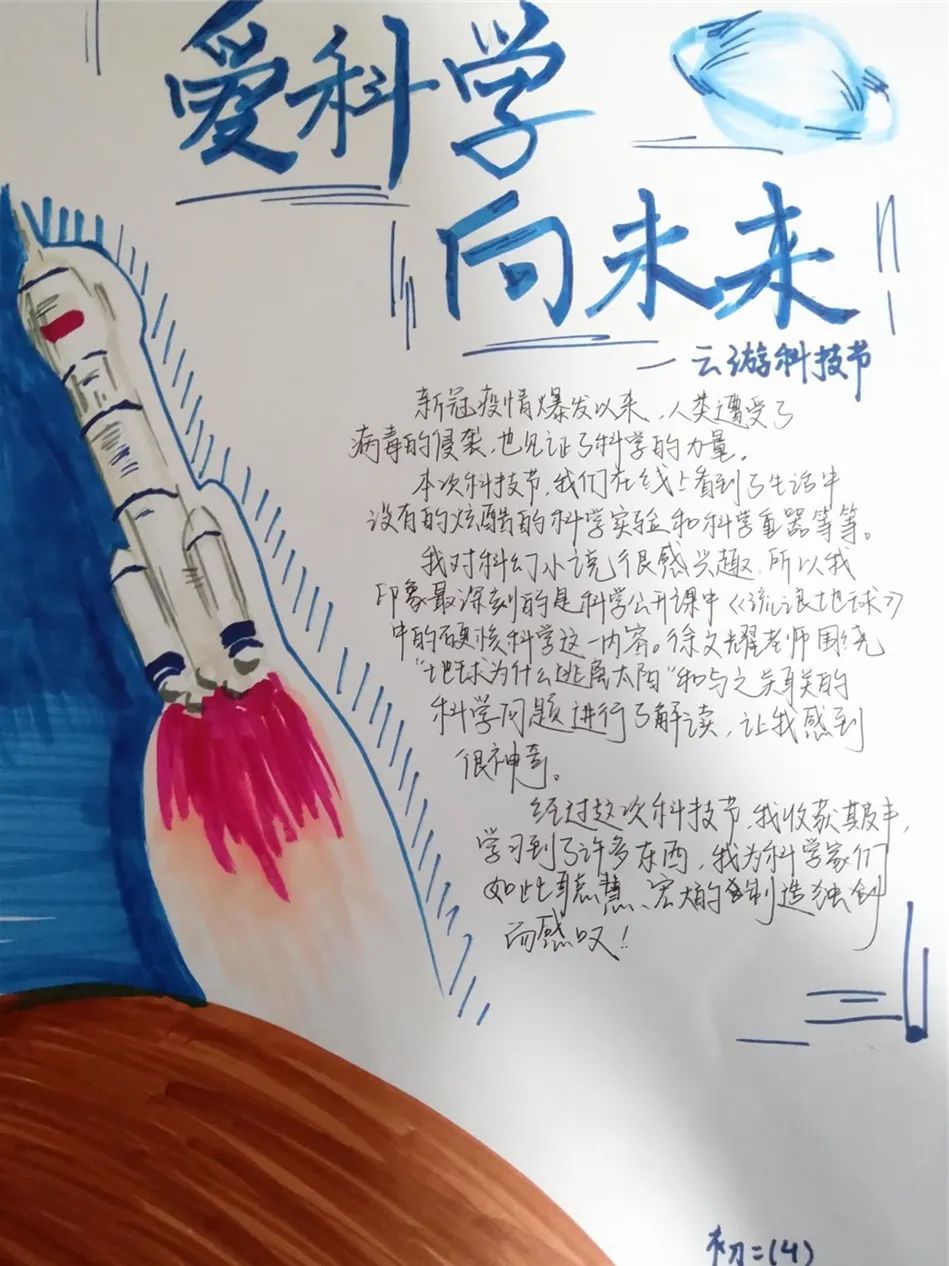 爱科学
向未来
—云游科技节
新冠疫情爆发以来,人类遭受了
病毒的侵袭,也见证了科学的力量。
本次科技节,我们在线上看到了生活中
没有的炫酷的科学实验和科学重器等等。
我对科幻小说很感兴趣,所以我
印象最深刻的是科学公开课中《流浪地球》
中的硬核科学这一内容。徐文耀老师围绕
“地球为什么逃离太阳”和与之关联的
科学问题进行了解读,让我感到
很神奇。
经过这次科技节,我收获颇丰,
学习到了许多东西,我为科学家们
如此智慧、宏大的制造独创
而感叹!
初二(4)